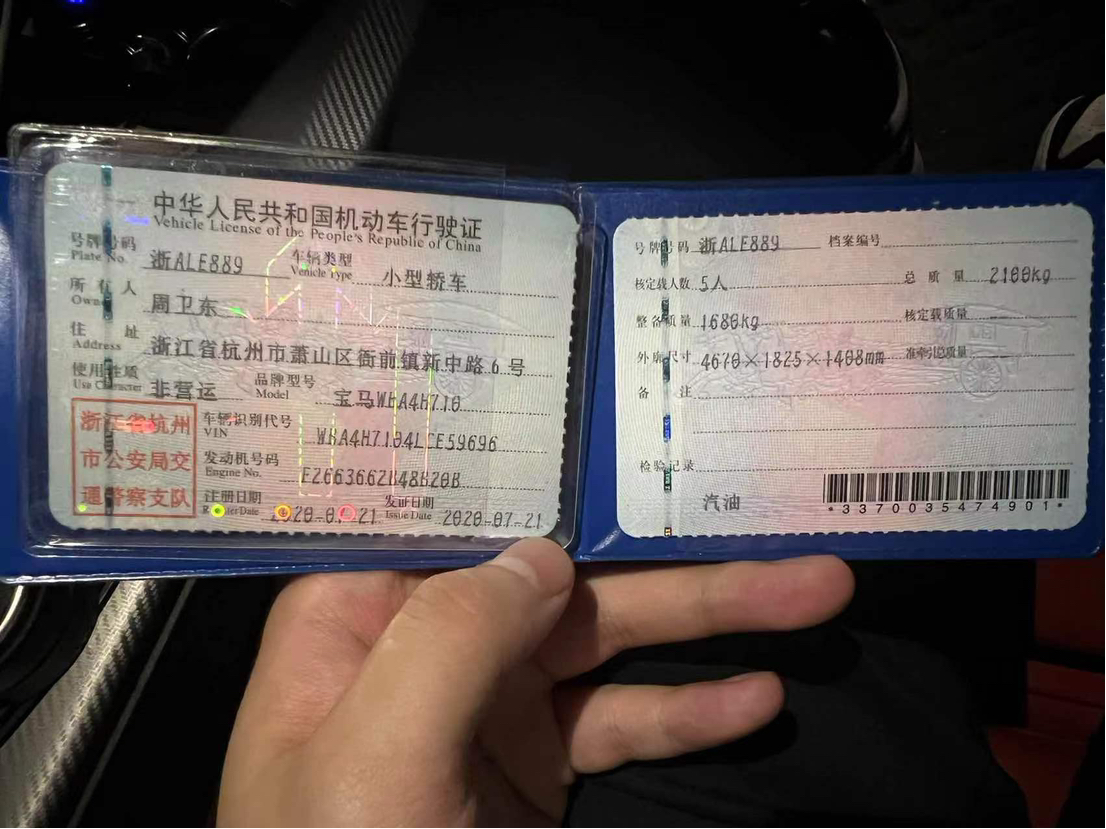 中华人民共和国机动车行驶证
Vehicle License of the People's Republic of China
号牌号码 浙ALE889 车辆类型 小型轿车
Plate No. Vehicle Type
所有人 周卫东
Owner
住址 浙江省杭州市萧山区衙前镇新中路6号
Address
使用性质 非营运 品牌型号 宝马WBA4H710
Use Character Model
浙江省杭州
市公安局交
通警察支队
车辆识别代号 WBA4H7104LCE59696
VIN
发动机号码
Engine No.
注册日期 发证日期 2020-07-21
Register Date Issue Date
号牌号码 浙ALE889 档案编号
核定载人数 5人 总质量 2100kg
整备质量 1680kg 核定载质量
外廓尺寸 4670×1825×1408mm 准牵引总质量
备注
检验记录
汽油
*3370035474901*